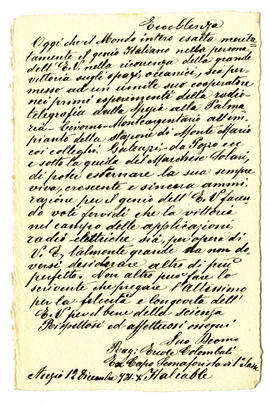 Eccellenza
Oggi che il Mondo intero esalta merita-
tamente il genio Italiano nella persona
dell'E.V. nella ricorrenza della grande
vittoria sugli spazi oceanici, sia per-
messo ad un umile suo cooperatore
nei primi esperimenti della radio-
telegrafia dalla Palma
Livorno - Montecatini all'im-
pianto della stazione di Monte Mario
coi colleghi
e sotto la guida del Marchese Solari,
di poter esternare la sua sempre
viva, crescente e sincera ammi-
razione per il genio dell'E.V. facen
do voti fervidi che la vittoria
nel campo delle applicazioni
radio elettriche sia, per opera di
V.E. talmente grande da non do-
versi desiderare altro di più
perfetto. Non altro può fare lo
scrivente che pregare l'Altissimo
per la felicità e longevità dell'
E.V. per il bene della scienza
Rispettosi ed affettuosi ossequi
Suo Devmo
Rag: Ercole Colombati
Ex Capo Semaforista di 1a classe
12 Dicembre Italcable